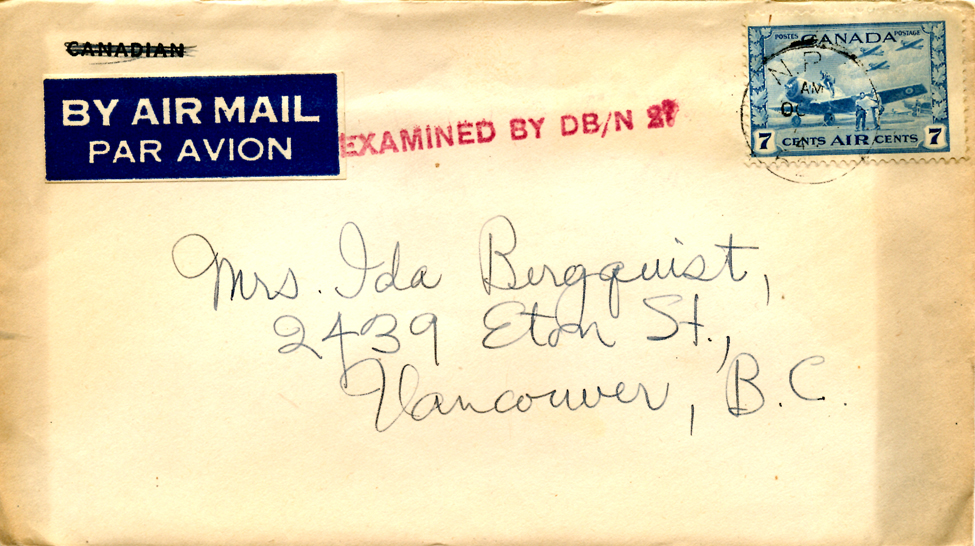 CANADIAN
BY AIR MAIL
PAR AVION
EXAMINED BY DB/N
POSTES CANADA POSTAGE
N P
AM
7 CENTS AIR CENTS 7
Mrs. Ida Bergquist,
2439 Eton St.,
Vancouver, B.C.